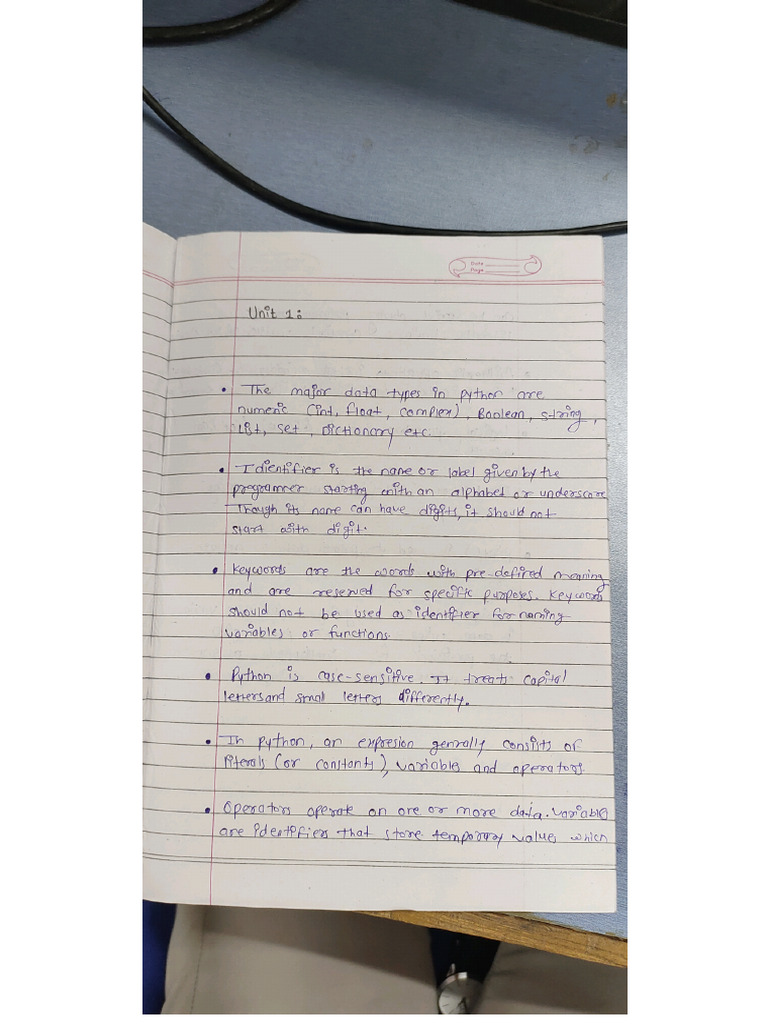 Date
Page
Unit 1:
• The major data types in python are
numeric (int, float, complex), Boolean, string,
list, set, Dictionary etc.
• Identifier is the name or label given by the
programmer starting with an alphabet or underscore
Though its name can have digits, it should not
start with digit.
• Keywords are the words with pre-defined meaning
and are reserved for specific purposes. Keywords
should not be used as identifier for naming
variables or functions.
• Python is case-sensitive. It treats capital
letters and small letters differently.
• In Python, an expresion genrally consists of
literals (or constants), variables and operators
• Operators operate on one or more data. Variable
are identifiers that store temporary value which